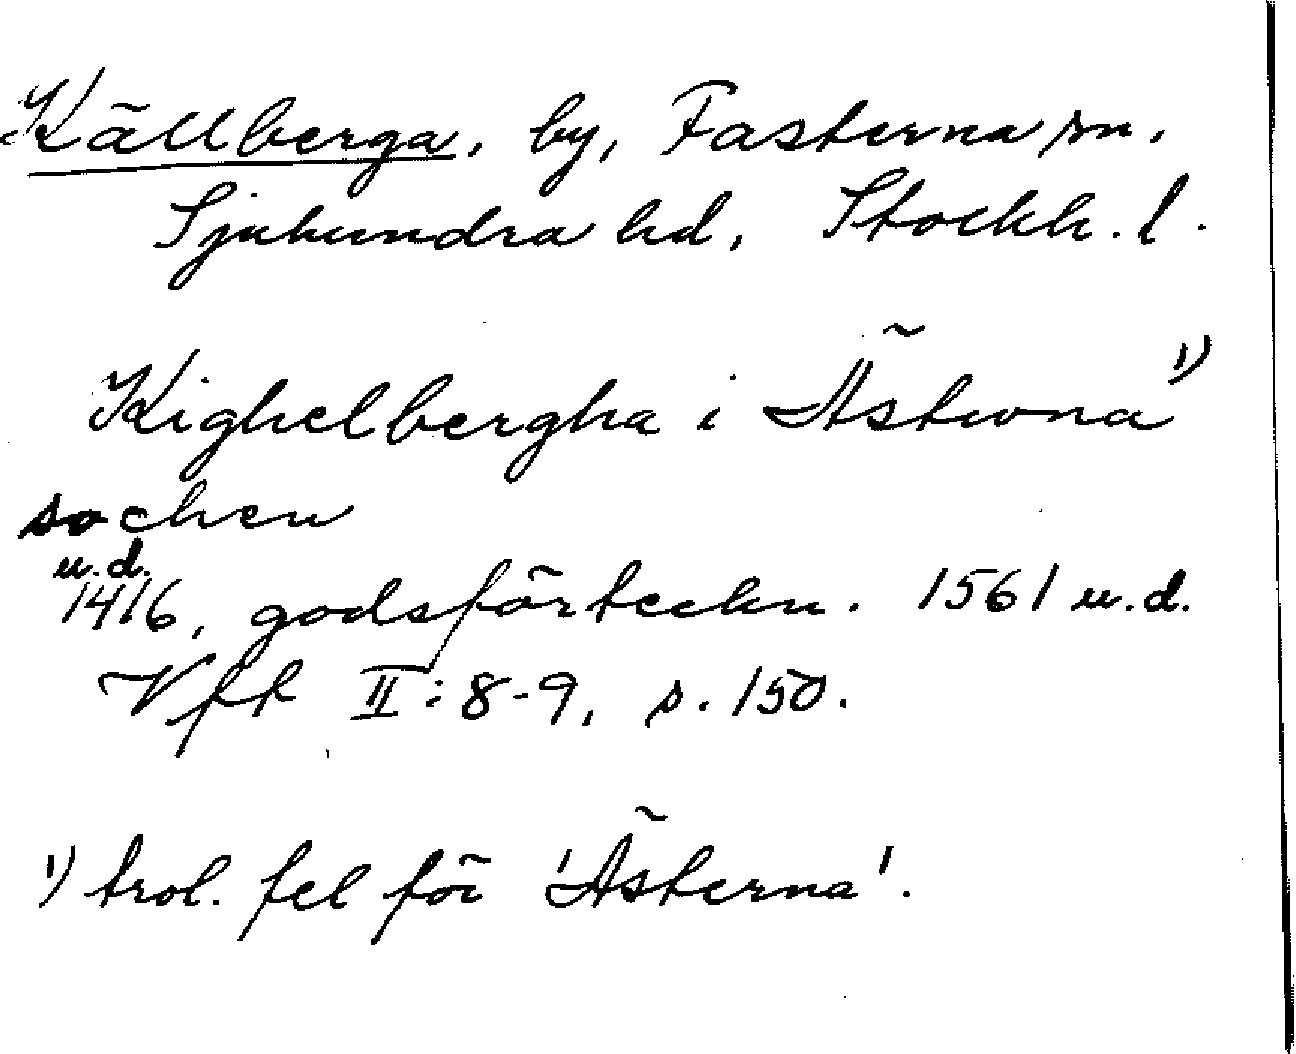 Källberga, by, Fasterna sn,
Sjuhundra hd, Stockh. l.
Kighelbergha i Ästwna 1)
sochen
u.d.
1416, godsförteckn. 1561 u.d.
Vfk II:8-9, s. 150.
1) trol. fel för 'Ästerna'.